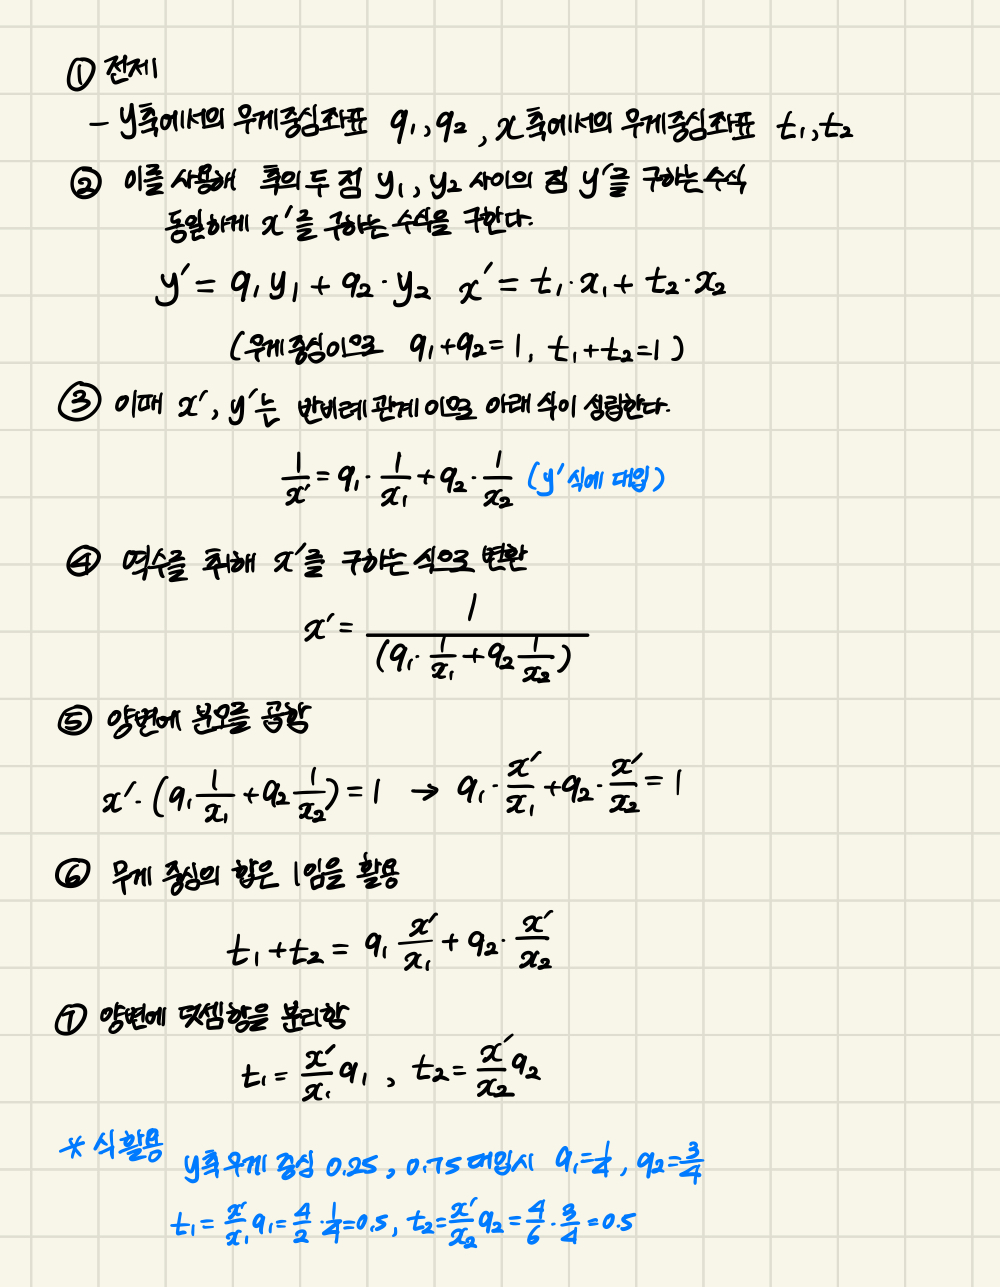 ① 전제
- y축에서의 무게중심좌표 q₁, q₂, x축에서의 무게중심좌표 t₁, t₂
② 이를 사용해 축의 두 점 y₁, y₂ 사이의 점 y′를 구하는 수식
동일하게 x′를 구하는 수식을 구한다.
y′ = q₁y₁ + q₂·y₂ x′ = t₁·x₁ + t₂·x₂
(무게중심이므로 q₁+q₂=1, t₁+t₂=1)
③ 이때 x′, y′는 반비례 관계이므로 아래 식이 성립한다.
1/x′ = q₁·1/x₁ + q₂·1/x₂ (y′ 식에 대입)
④ 역수를 취해 x′를 구하는 식으로 변환
x′ = 1/(q₁·1/x₁ + q₂ 1/x₂)
⑤ 양변에 분모를 곱함
x′·(q₁ 1/x₁ + q₂ 1/x₂) = 1 → q₁·x′/x₁ + q₂·x′/x₂ = 1
⑥ 무게 중심의 합은 1임을 활용
t₁ + t₂ = q₁ x′/x₁ + q₂·x′/x₂
⑦ 양변에 덧셈항을 분리함
t₁ = x′/x₁ q₁, t₂ = x′/x₂ q₂
* 식 활용
y축 무게 중심 0.25, 0.75 대입시 q₁=1/4, q₂=3/4
t₁ = x′/x₁ q₁ = 4/2·1/4 = 0.5, t₂ = x′/x₂ q₂ = 4/6·3/4 = 0.5